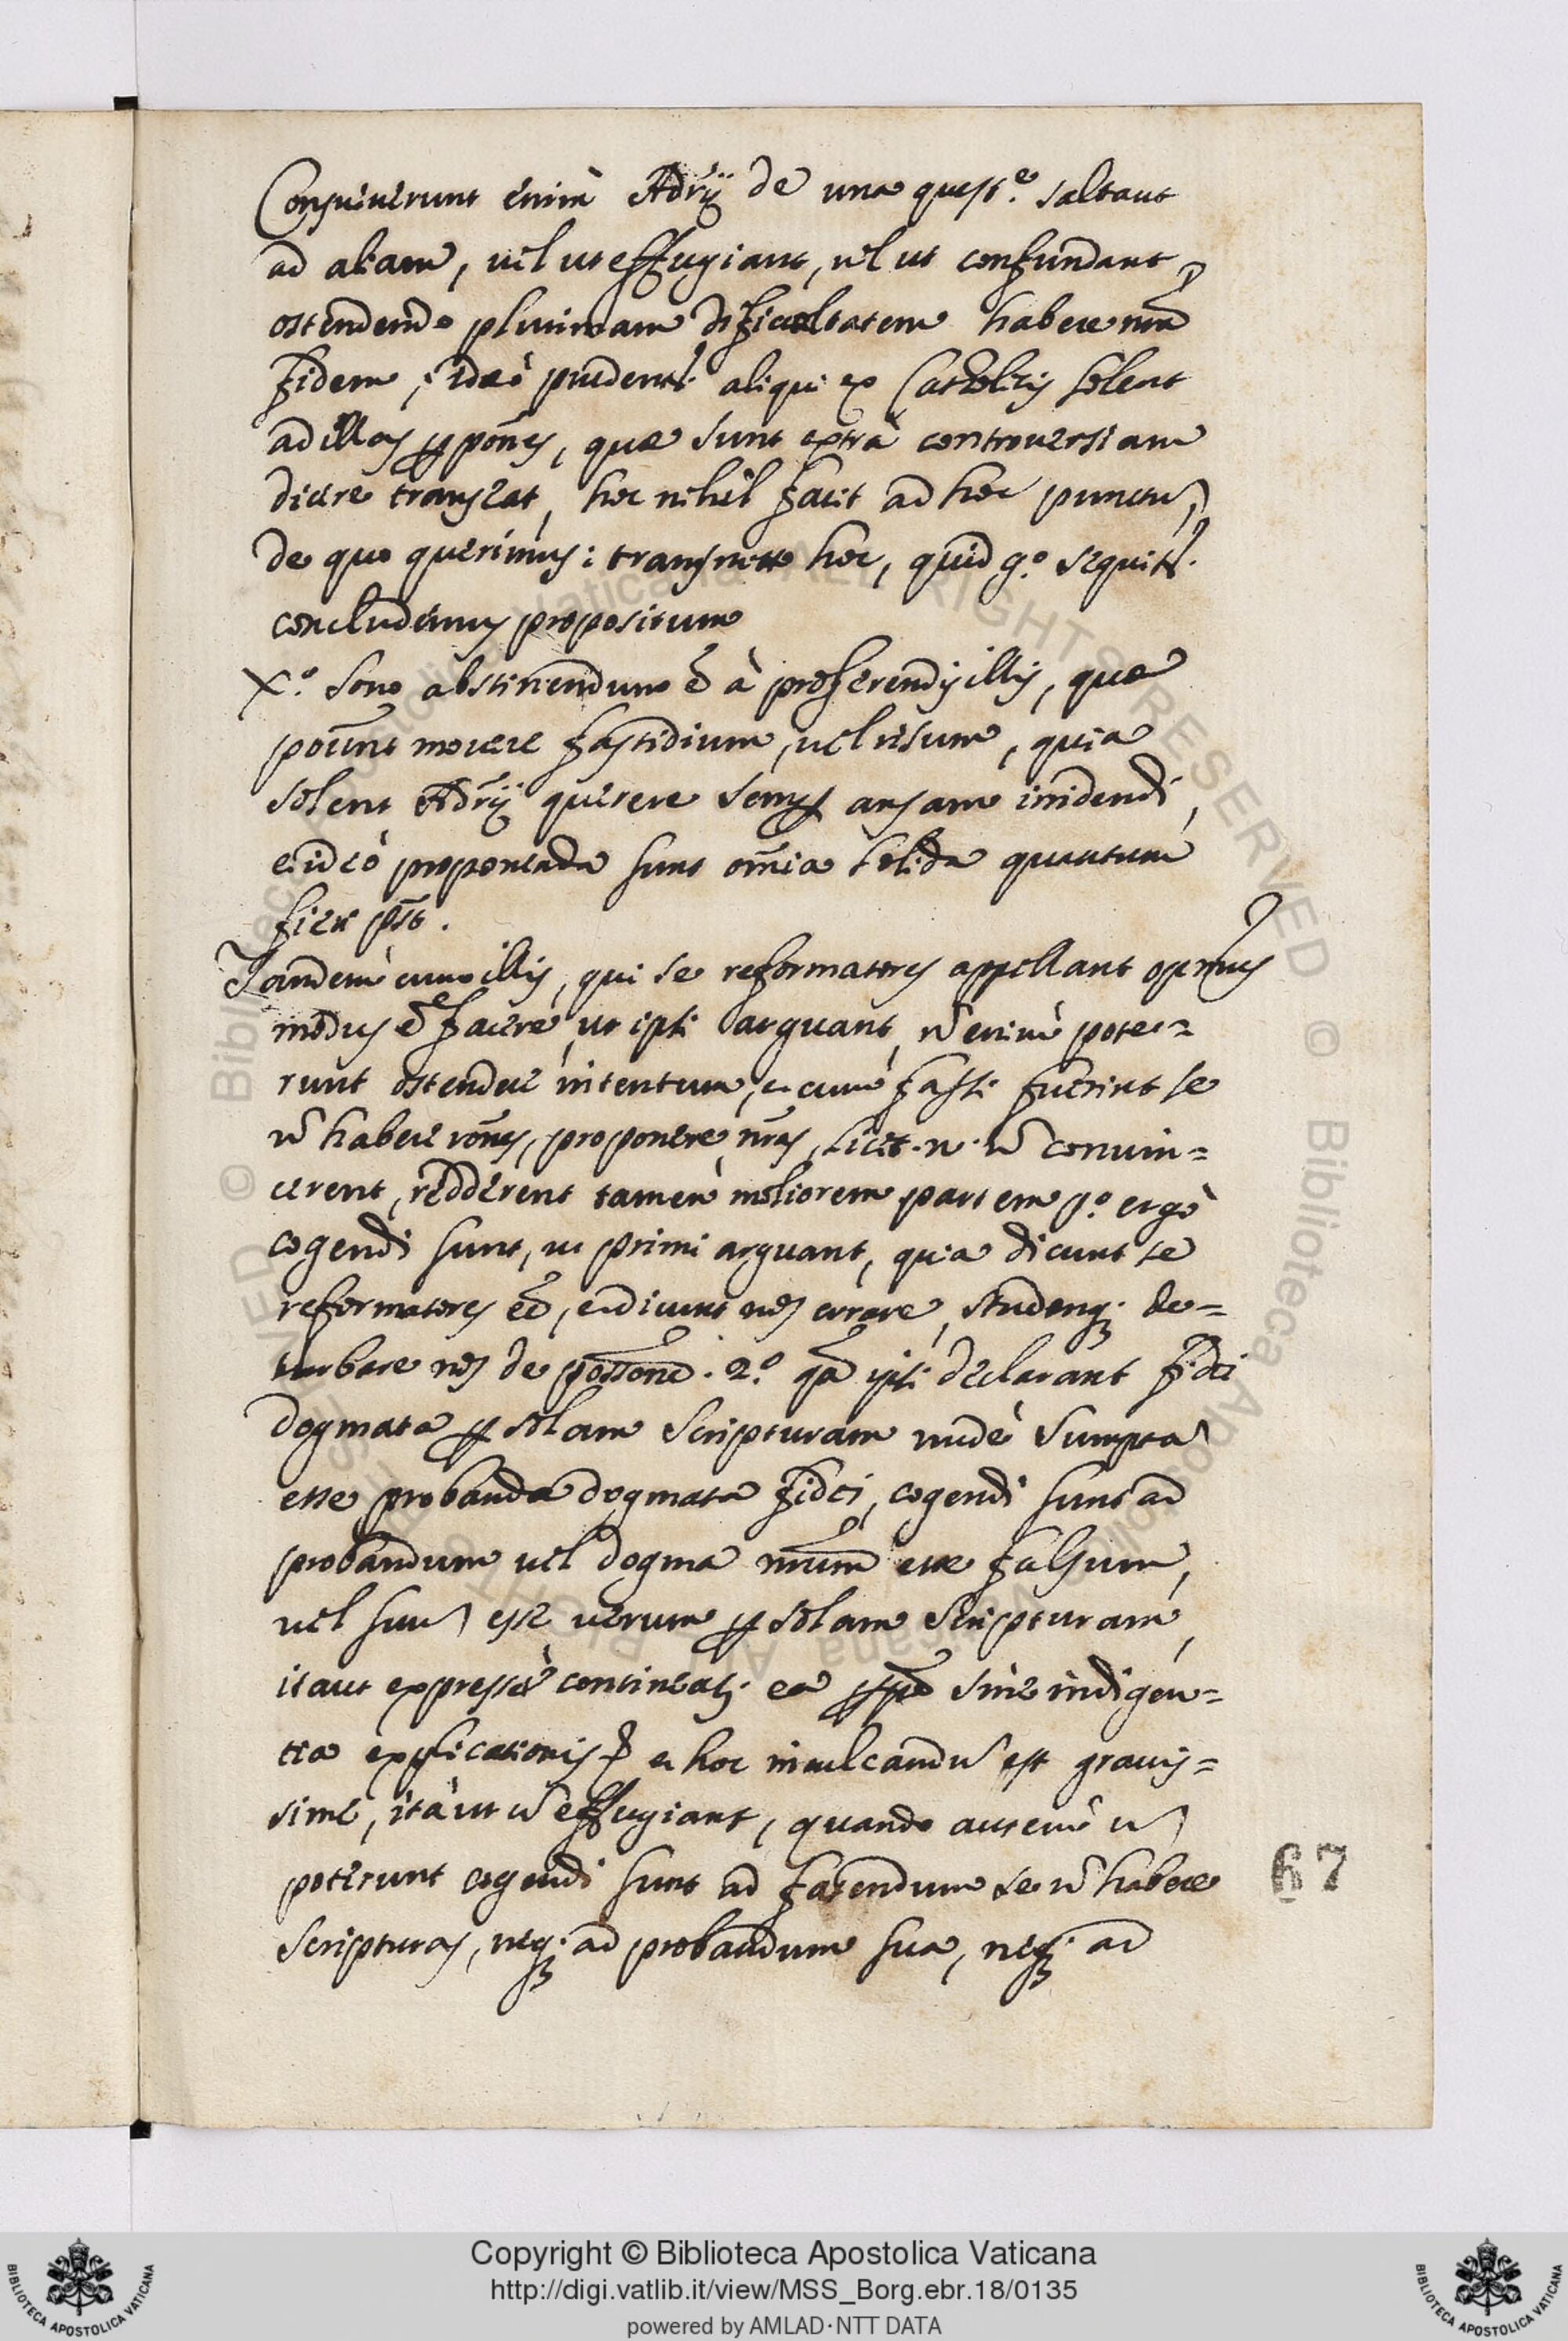 Consueuerunt enim Adrij de una quest.e saltant
ad aliam, uel ut effugiant, uel ut confundant,
ostendendo plurimam dificultatem habere nrã
fidem, ideò prudentr. aliqui ex Catholicis solent
ad illas pponẽs, quae sunt extrà controuersiam
dicere transeat, hoc nihil facit ad hoc punctũ,
de quo querimus: transmitto hoc, quid g.o sequitr.
concludemus propositum
X.o Sono abstinendum ẽ à proferendis illis, quae
poũnt mouere fastidium, uel risum, quia
solent Adrij querere semp ansam irridendi,
et ideò proponenda sunt omĩa solida quantum
fieri põt.
Tandem cum illis, qui se reformatores appellant optimus
modus ẽ facere, ut ipsi arguant, nõ enim pote=
runt ostendere intentum, et cum fassi fuerint se
nõ habere rões, proponere nrãs, licet. n. nõ conuin=
cerent, redderent tamen meliorem partem p.o ergò
cogendi sunt, ut primi arguant, quia dicunt se
reformatores eẽ, et dicunt nos errare, studentq; de=
turbare nos de possonẽ. 2.o qã ipsi declarant fidei
dogmata p solam Scripturam nudè sumpta
esse probanda dogmata fidei, cogendi sunt ad
probandum uel dogma nrũm esse falsum,
uel suũ esse uerum p solam Scripturam,
itaut expressè contineatr. ea sine indigen=
tia explicationis et hoc inculcandũ est grauis=
simè, itàut nõ effugiant, quando autem nõ
poterunt cogendi sunt ad fatendum se nõ habere
Scripturas, neq; ad probandum sua, neq; ad
67
Copyright © Biblioteca Apostolica Vaticana
http://digi.vatlib.it/view/MSS_Borg.ebr.18/0135
powered by AMLAD·NTT DATA